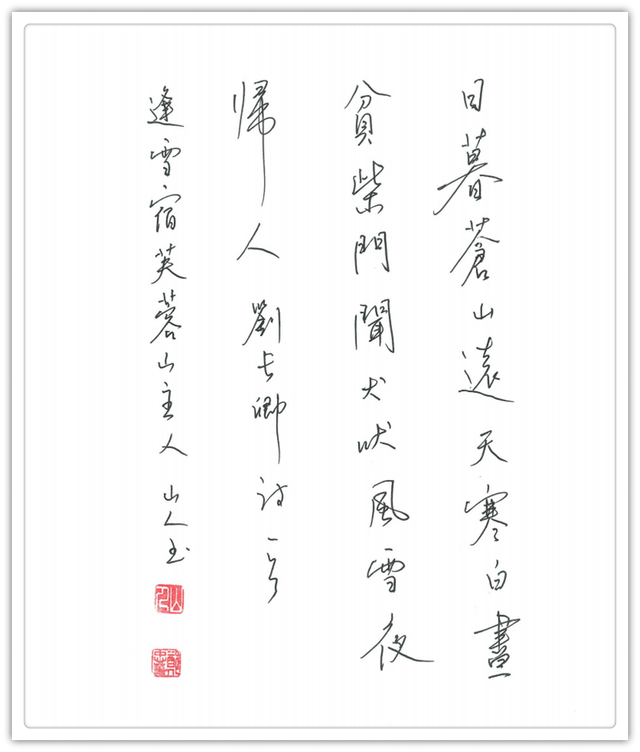 日暮蒼山遠天寒白畫
貧柴門聞犬吠風雪夜
帰人 劉長卿詩一首
逢雪宿芙蓉山主人 山人书